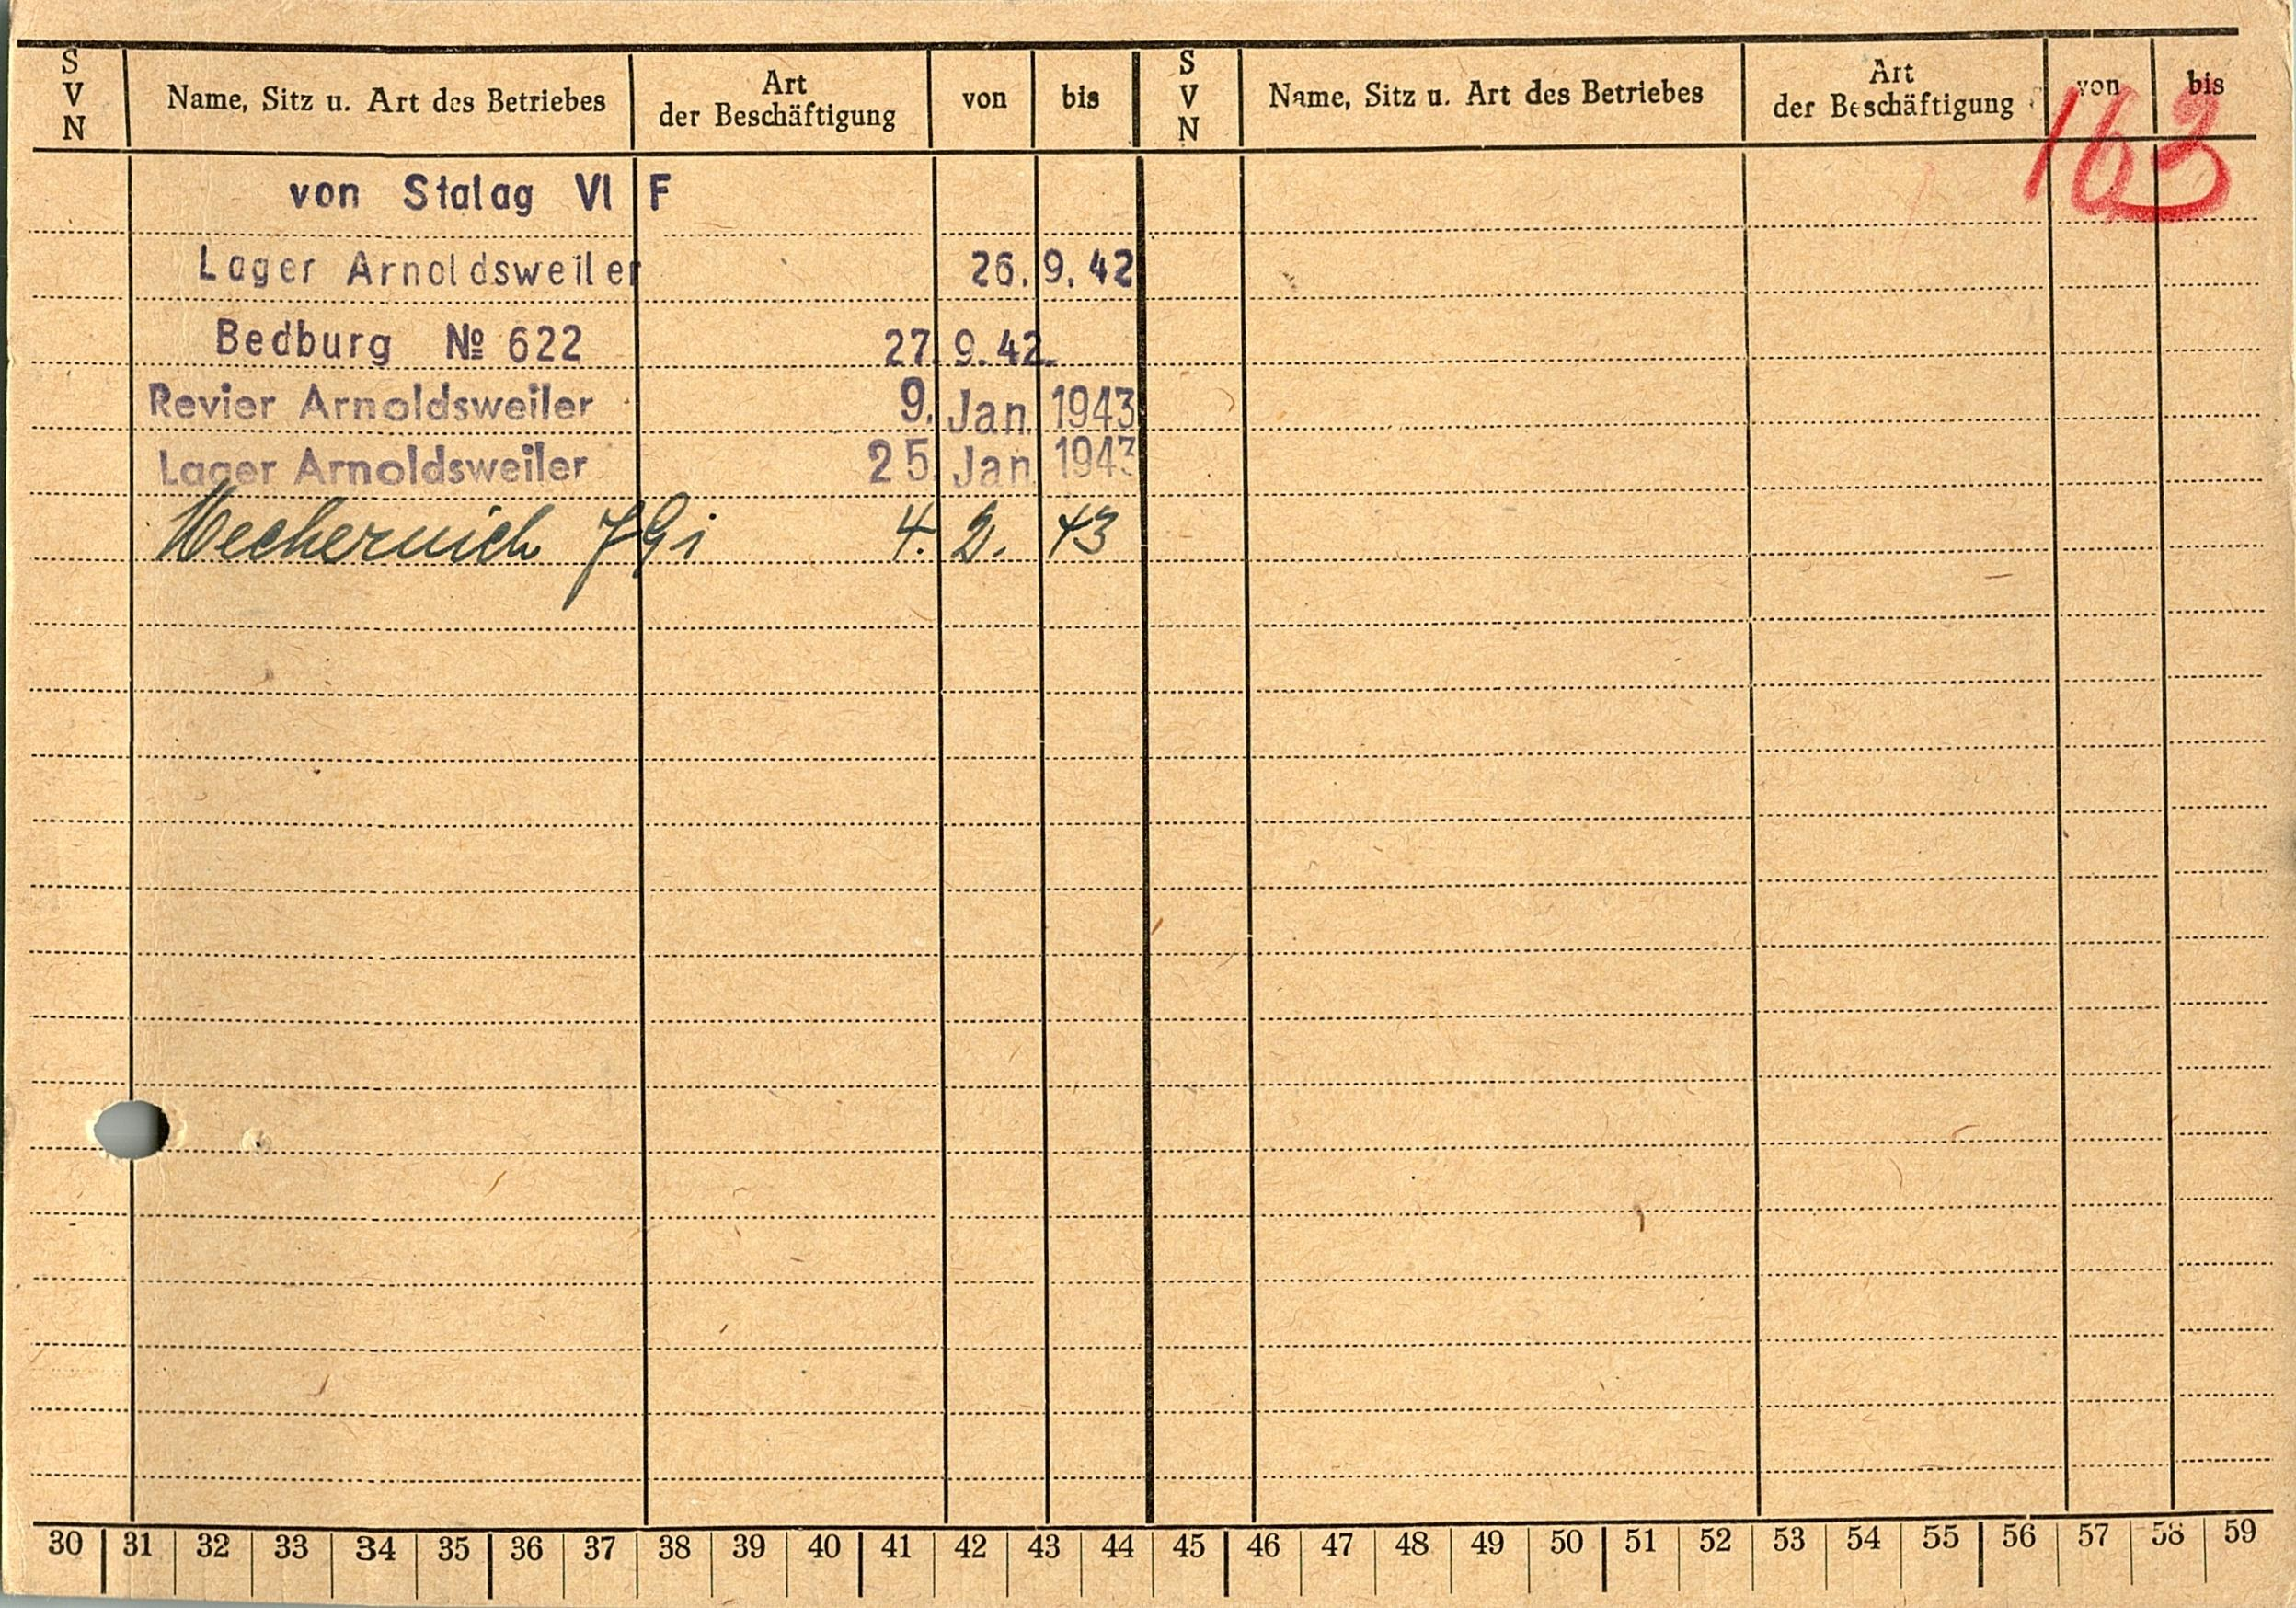 S V N Name, Sitz u. Art des Betriebes Art der Beschäftigung von bis S V N Name, Sitz u. Art des Betriebes Art der Beschäftigung von bis
163
von Stalag VI F
Lager Arnoldsweiler 26. 9. 42
Bedburg № 622 27. 9. 42.
Revier Arnoldsweiler 9. Jan. 1943
Lager Arnoldsweiler 25. Jan. 1943
Mechernich 4. 2. 43
30 31 32 33 34 35 36 37 38 39 40 41 42 43 44 45 46 47 48 49 50 51 52 53 54 55 56 57 58 59